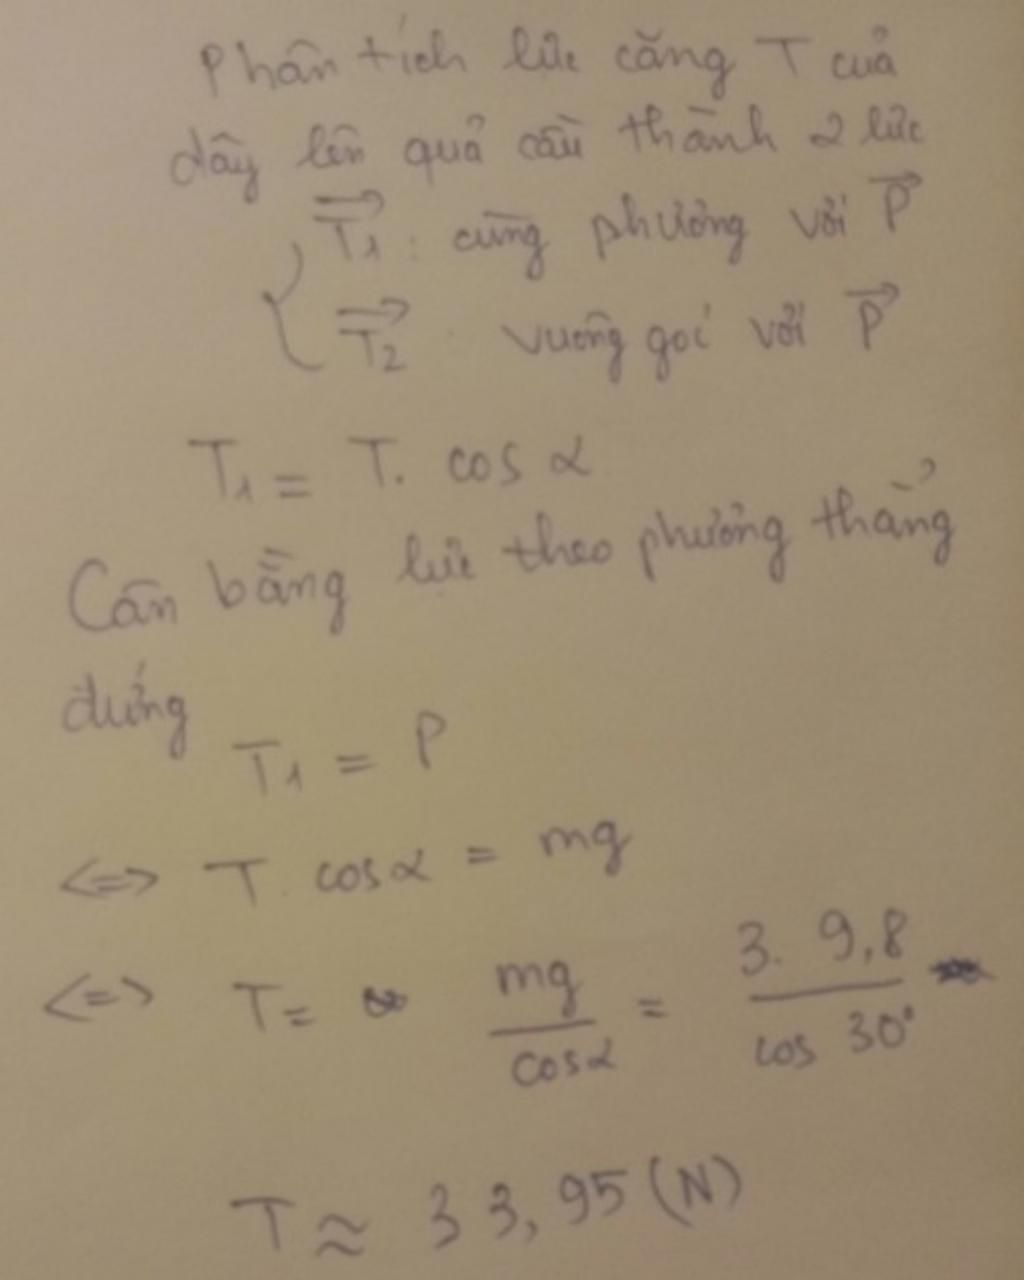 Phân tích lực căng T của
dây lên quả cầu thành 2 lực
T₁: cùng phương với P
T₂ vuông góc với P
T₁ = T. cos α
Cân bằng lực theo phương thẳng
đứng
T₁ = P
<=> T. cosα = mg
<=> T = mg/cosα = 3. 9,8/cos 30°
T ≈ 33,95 (N)